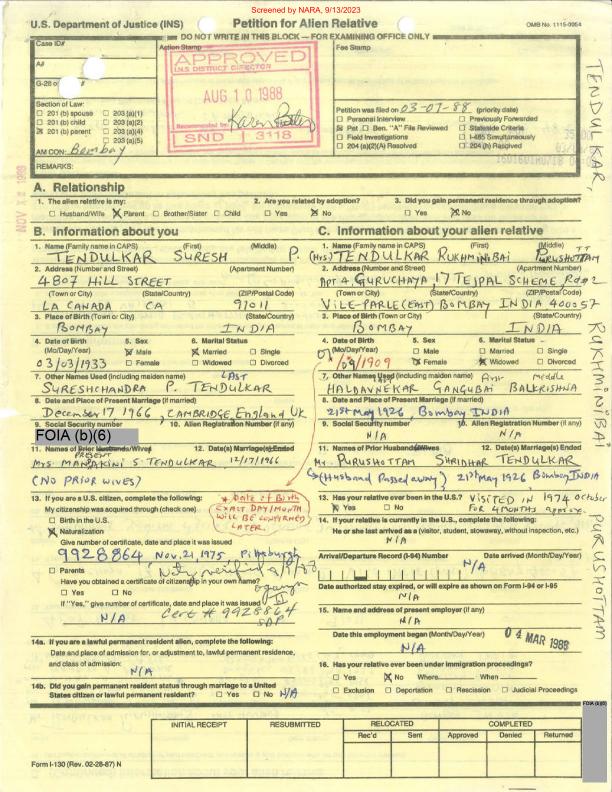 Screened by NARA, 9/13/2023
U.S. Department of Justice (INS) Petition for Alien Relative OMB No. 1115-0054
DO NOT WRITE IN THIS BLOCK — FOR EXAMINING OFFICE ONLY
Case ID#
A#
G-28 or
Section of Law:
☐ 201 (b) spouse ☐ 203 (a)(1)
☐ 201 (b) child ☐ 203 (a)(2)
☒ 201 (b) parent ☐ 203 (a)(4)
☐ 203 (a)(5)
AM CON: Bombay
REMARKS:
Action Stamp
APPROVED
U.S. DISTRICT DIRECTOR
AUG 10 1988
Recommended by
SND 3118
Fee Stamp
Petition was filed on 03-07-88 (priority date)
☐ Personal Interview ☐ Previously Forwarded
☒ Pet. ☐ Ben. "A" File Reviewed ☐ Stateside Criteria
☐ Field Investigations ☐ I-485 Simultaneously
☐ 204 (a)(2)(A) Resolved ☐ 204 (h) Resolved
A. Relationship
1. The alien relative is my:
☐ Husband/Wife ☒ Parent ☐ Brother/Sister ☐ Child
2. Are you related by adoption?
☐ Yes ☒ No
3. Did you gain permanent residence through adoption?
☐ Yes ☒ No
B. Information about you
1. Name (Family name in CAPS) (First) (Middle)
TENDULKAR SURESH P.
2. Address (Number and Street) (Apartment Number)
4807 HILL STREET
(Town or City) (State/Country) (ZIP/Postal Code)
LA CANADA CA 91011
3. Place of Birth (Town or City) (State/Country)
BOMBAY INDIA
4. Date of Birth (Mo/Day/Year) 5. Sex 6. Marital Status
03/03/1933 ☒ Male ☐ Female ☒ Married ☐ Single ☐ Widowed ☐ Divorced
7. Other Names Used (including maiden name)
LAST
SURESHCHANDRA P. TENDULKAR
8. Date and Place of Present Marriage (if married)
December 17 1966, CAMBRIDGE, England UK
9. Social Security number 10. Alien Registration Number (if any)
FOIA (b)(6)
11. Names of Prior Husbands/Wives 12. Date(s) Marriage(s) Ended
PRESENT
Mrs. MANDAKINI S. TENDULKAR 12/17/1966
(NO PRIOR WIVES)
13. If you are a U.S. citizen, complete the following:
My citizenship was acquired through (check one)
☐ Birth in the U.S.
☒ Naturalization
Give number of certificate, date and place it was issued
9928864 Nov. 21, 1975 Pittsburgh
☐ Parents
Have you obtained a certificate of citizenship in your own name?
☐ Yes ☐ No
If "Yes," give number of certificate, date and place it was issued
N/A Cert # 9928864
* Date of Birth
EXACT DAY/MONTH
WILL BE CONFIRMED
LATER.
14a. If you are a lawful permanent resident alien, complete the following:
Date and place of admission for, or adjustment to, lawful permanent residence,
and class of admission: N/A
14b. Did you gain permanent resident status through marriage to a United
States citizen or lawful permanent resident? ☐ Yes ☐ No N/A
C. Information about your alien relative
1. Name (Family name in CAPS) (First) (Middle)
(Mrs) TENDULKAR RUKHMINIBAI PURUSHOTTAM
2. Address (Number and Street) (Apartment Number)
APT 4, GURUCHAYA, 17 TEJPAL SCHEME, Rd #2
(Town or City) (State/Country) (ZIP/Postal Code)
VILE-PARLE (EAST) BOMBAY INDIA 400057
3. Place of Birth (Town or City) (State/Country)
BOMBAY INDIA
4. Date of Birth (Mo/Day/Year) 5. Sex 6. Marital Status
/09/1909 ☐ Male ☒ Female ☐ Married ☐ Single ☒ Widowed ☐ Divorced
7. Other Names Used (including maiden name)
Last First middle
HALDAVNEKAR GANGUBAI BALKRISHNA
8. Date and Place of Present Marriage (if married)
21st May 1926, Bombay INDIA
9. Social Security number 10. Alien Registration Number (if any)
N/A N/A
11. Names of Prior Husbands/Wives 12. Date(s) Marriage(s) Ended
Mr. PURUSHOTTAM SHRIDHAR TENDULKAR
(Husband Passed away) 21st May 1926 Bombay INDIA
13. Has your relative ever been in the U.S.? VISITED IN 1974 October
☒ Yes ☐ No FOR 4 MONTHS approx.
14. If your relative is currently in the U.S., complete the following:
He or she last arrived as a (visitor, student, stowaway, without inspection, etc.)
N/A
Arrival/Departure Record (I-94) Number Date arrived (Month/Day/Year)
N/A
Date authorized stay expired, or will expire as shown on Form I-94 or I-95
N/A
15. Name and address of present employer (if any)
N/A
Date this employment began (Month/Day/Year)
N/A
04 MAR 1988
16. Has your relative ever been under immigration proceedings?
☐ Yes ☒ No Where When
☐ Exclusion ☐ Deportation ☐ Rescission ☐ Judicial Proceedings
FOIA (b)(6)
INITIAL RECEIPT RESUBMITTED RELOCATED COMPLETED
Rec'd Sent Approved Denied Returned
Form I-130 (Rev. 02-28-87) N
TENDULKAR, RUKHMINIBAI PURUSHOTTAM